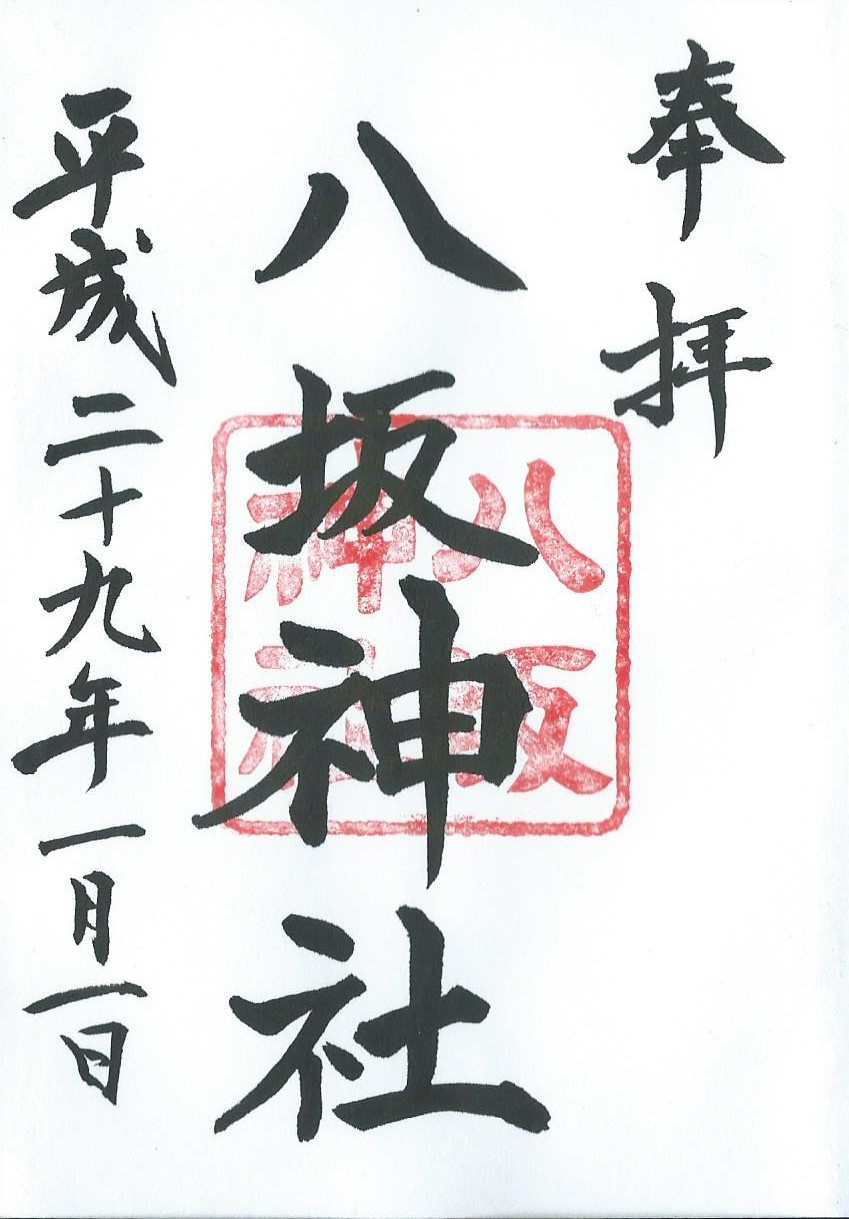 奉拝
八坂神社
八坂
神社
平成二十九年一月一日